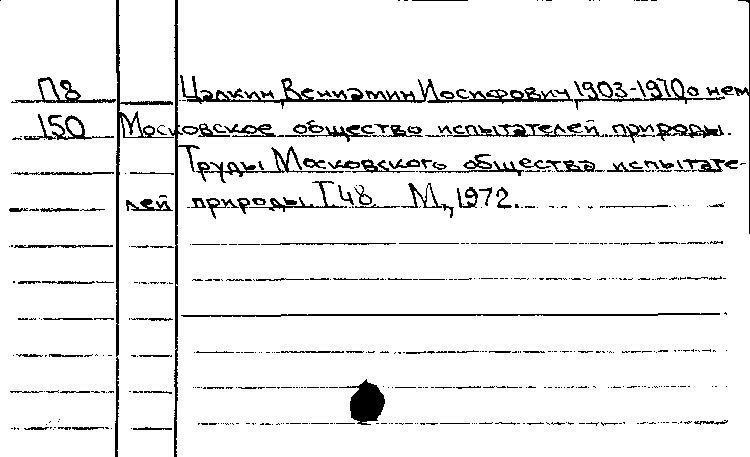 П8 Цалкин, Вениамин Иосифович, 1903-1970, о нем
150 Московское общество испытателей природы.
Труды Московского общества испытате-
лей природы. Т48 М., 1972.